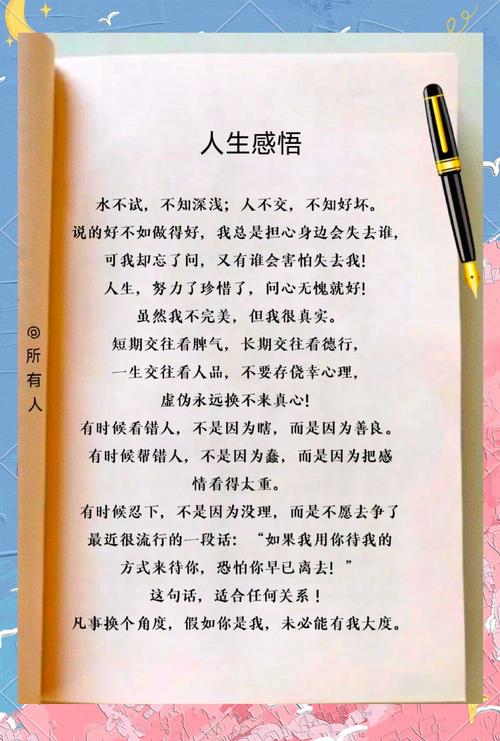 人生感悟
水不试，不知深浅；人不交，不知好坏。
说的好不如做得好，我总是担心身边会失去谁，
可我却忘了问，又有谁会害怕失去我!
人生，努力了珍惜了，问心无愧就好!
虽然我不完美，但我很真实。
短期交往看脾气，长期交往看德行，
一生交往看人品，不要存侥幸心理，
虚伪永远换不来真心!
有时候看错人，不是因为瞎，而是因为善良。
有时候帮错人，不是因为蠢，而是因为把感
情看得太重。
有时候忍下，不是因为没理，而是不愿去争了
最近很流行的一段话：“如果我用你待我的
方式来待你，恐怕你早已离去!”
这句话，适合任何关系！
凡事换个角度，假如你是我，未必能有我大度。
@所有人